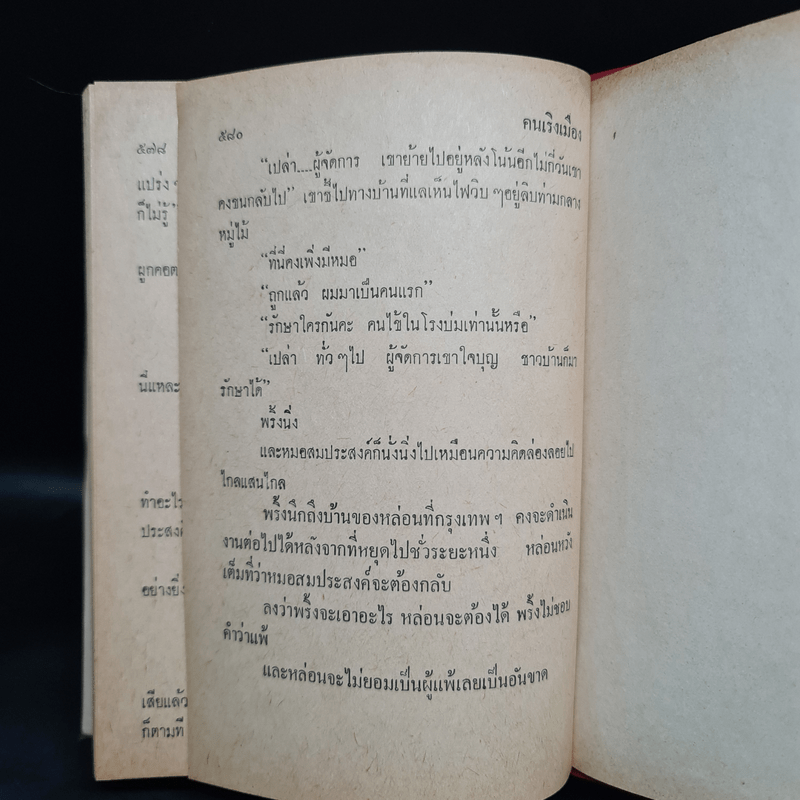 ๕๗๘
แปร่ง ๆ
ก็ไม่รู้"
ผูกคอต
นี่แหละ
ทำอะไร
ประสงค์
อย่างยิ่ง
เสียแล้ว
ก็ตามที
๕๘๐
คนเริงเมือง
"เปล่า....ผู้จัดการ เขาย้ายไปอยู่หลังโน้นอีกไม่กี่วันเขา
คงขนกลับไป" เขาชี้ไปทางบ้านที่แลเห็นไฟวิบ ๆอยู่ลิบท่ามกลาง
หมู่ไม้
"ที่นี่คงเพิ่งมีหมอ"
"ถูกแล้ว ผมมาเป็นคนแรก"
"รักษาใครกันคะ คนไข้ในโรงบ่มเท่านั้นหรือ"
"เปล่า ทั่ว ๆไป ผู้จัดการเขาใจบุญ ชาวบ้านก็มา
รักษาได้"
พริ้งนิ่ง
และหมอสมประสงค์ก็นั่งนิ่งไปเหมือนความคิดล่องลอยไป
ไกลแสนไกล
พริ้งนึกถึงบ้านของหล่อนที่กรุงเทพ ฯ คงจะดำเนิน
งานต่อไปได้หลังจากที่หยุดไปชั่วระยะหนึ่ง หล่อนหวัง
เต็มที่ว่าหมอสมประสงค์จะต้องกลับ
ลงว่าพริ้งจะเอาอะไร หล่อนจะต้องได้ พริ้งไม่ชอบ
คำว่าแพ้
และหล่อนจะไม่ยอมเป็นผู้แพ้เลยเป็นอันขาด